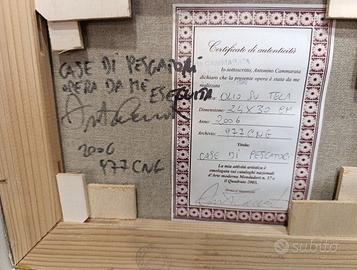 CASE DI PESCATORI
OPERA DA ME
ESEGUITA
2006
977 CNG
Certificato di autenticità
CAMMARATA
Io sottoscritto, Antonino Cammarata
dichiaro che la presente opera è stata da me
realizzata
OLIO SU TELA
Dimensione: 24X30 CM
Anno: 2006
Archivio: 977 CNG
Titolo:
CASE DI PESCATORI
La mia attività artistica è
omologata sui cataloghi nazionali
d'Arte moderna Mondadori n. 37 e
Il Quadrato 2003.
subito